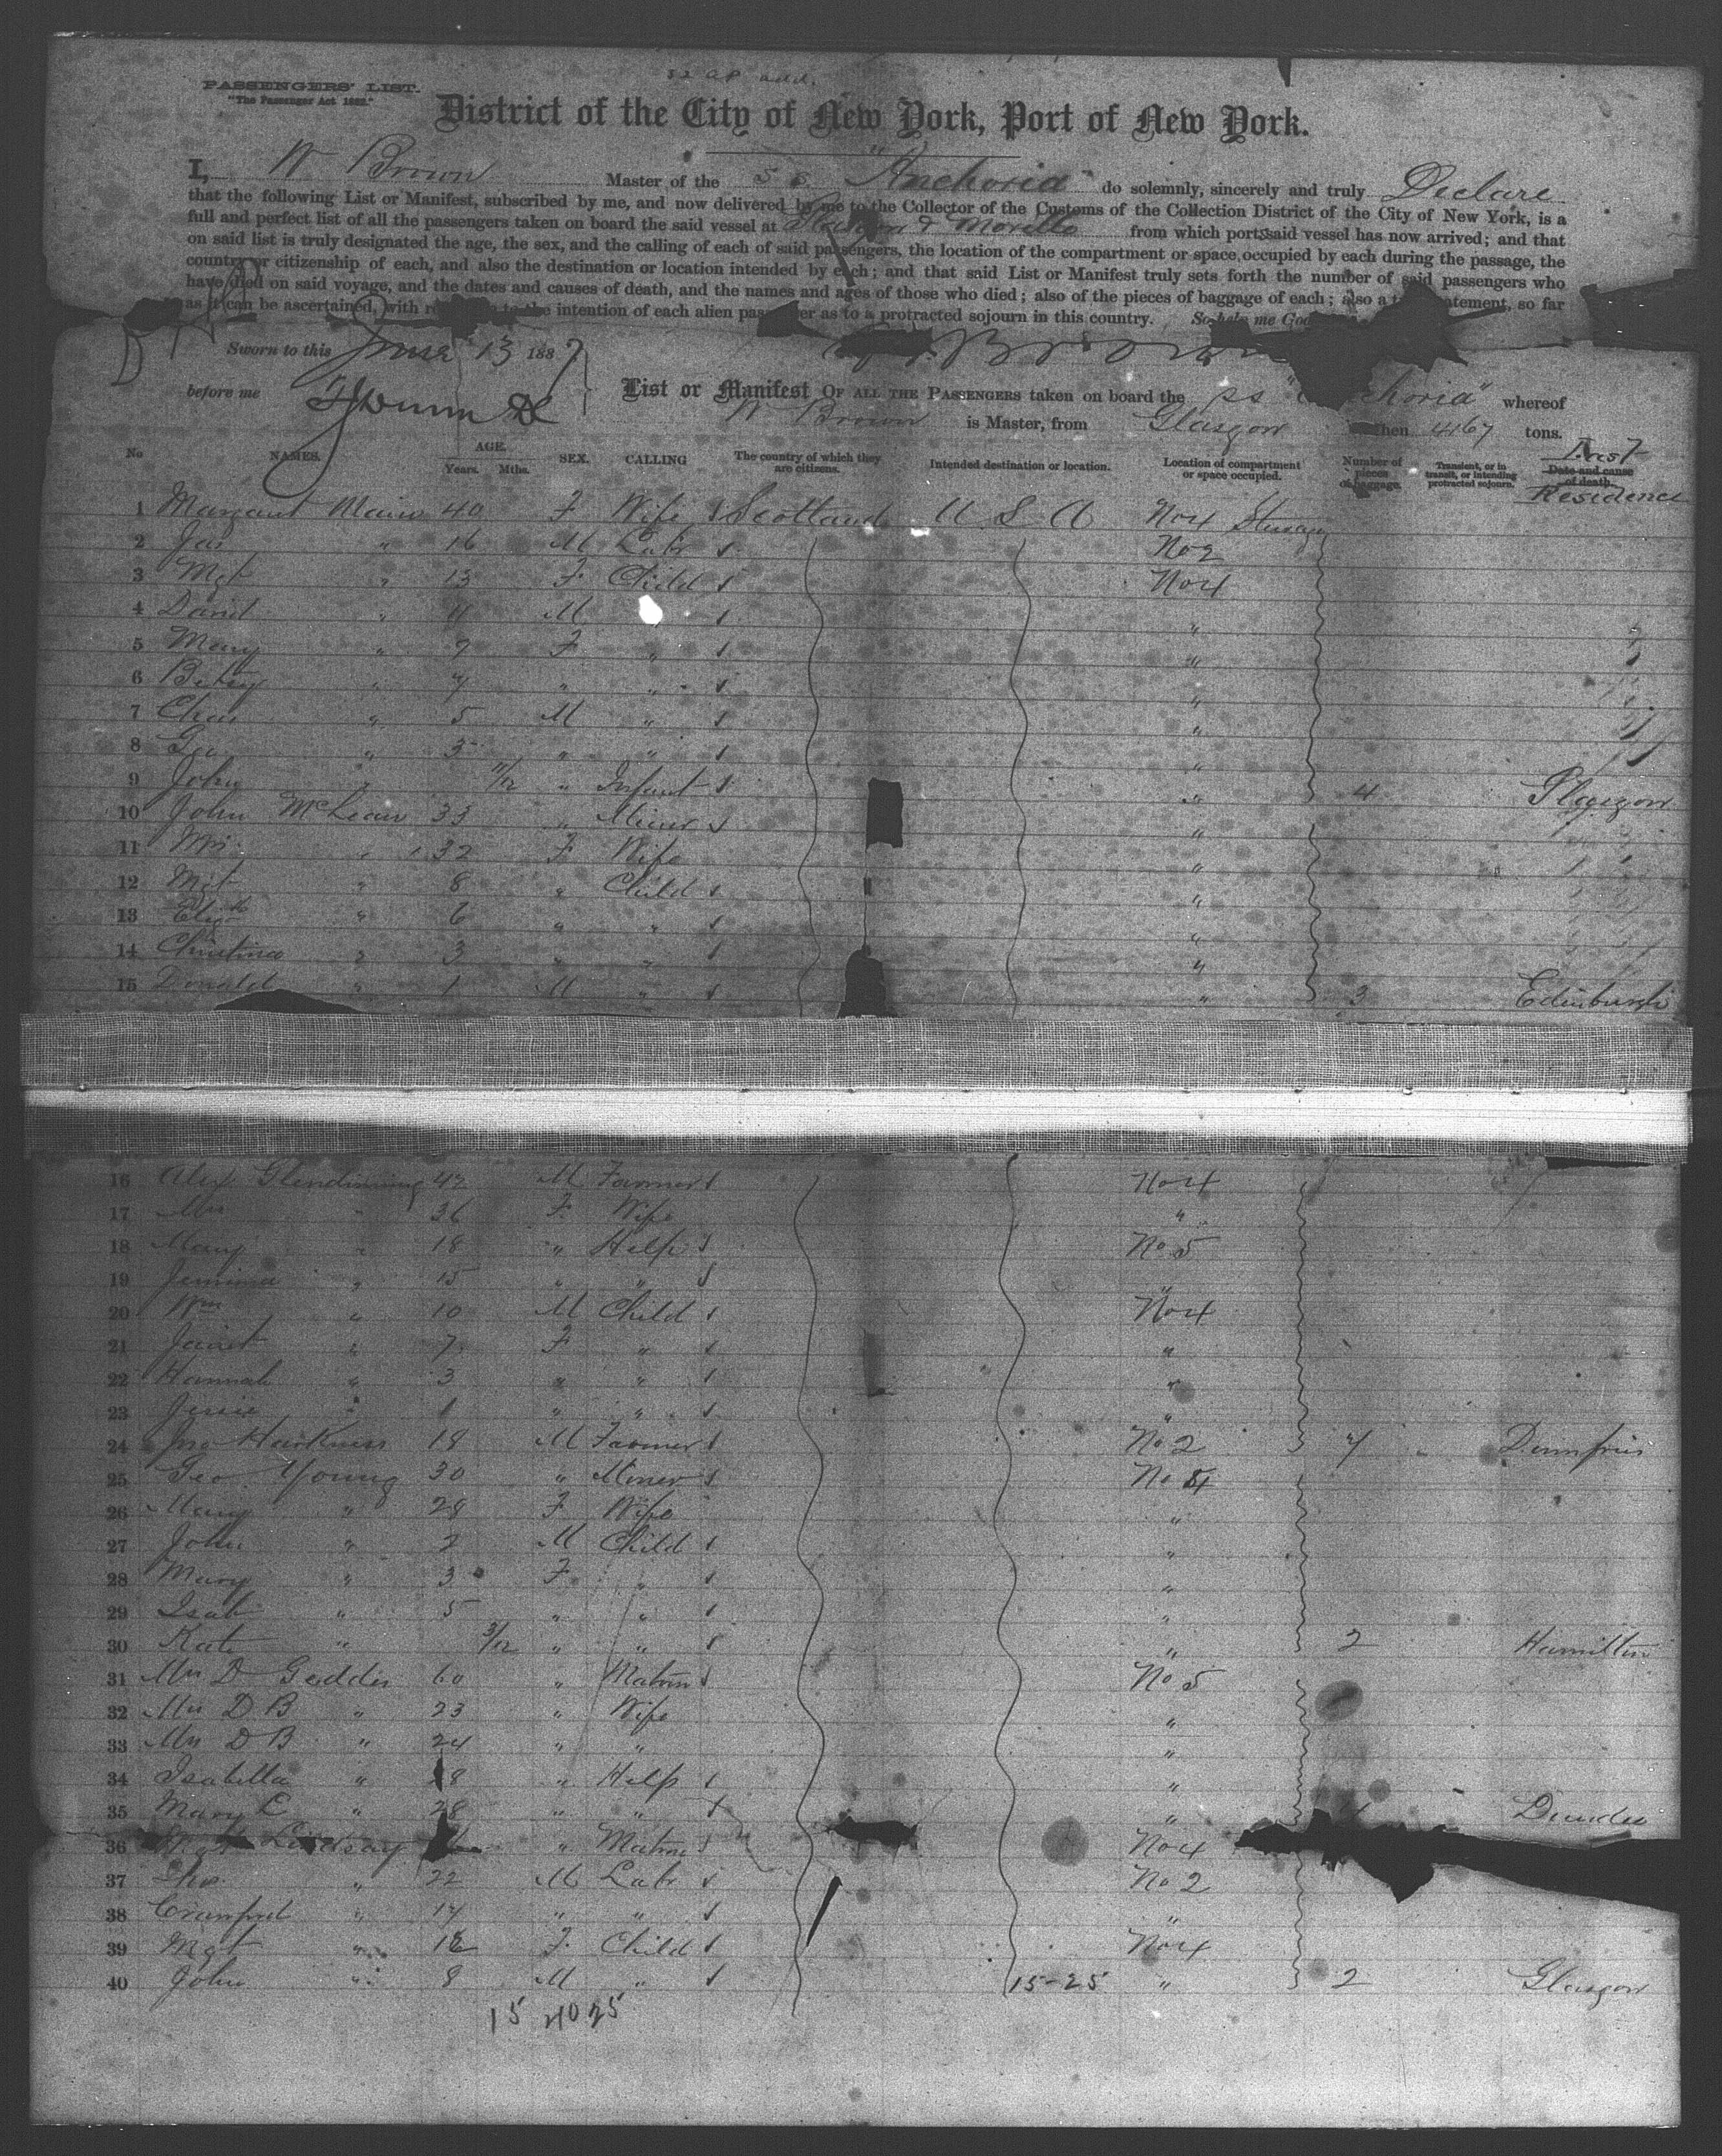 PASSENGERS' LIST.
"The Passenger Act 1882."
District of the City of New York, Port of New York.
I, W Brown Master of the S S "Anchoria" do solemnly, sincerely and truly Declare
that the following List or Manifest, subscribed by me, and now delivered by me to the Collector of the Customs of the Collection District of the City of New York, is a
full and perfect list of all the passengers taken on board the said vessel at & Moville from which port said vessel has now arrived; and that
on said list is truly designated the age, the sex, and the calling of each of said passengers, the location of the compartment or space occupied by each during the passage, the
country or citizenship of each, and also the destination or location intended by each; and that said List or Manifest truly sets forth the number of said passengers who
have died on said voyage, and the dates and causes of death, and the names and ages of those who died; also of the pieces of baggage of each; also a statement, so far
as it can be ascertained, with to the intention of each alien passenger as to a protracted sojourn in this country. So help me God
Sworn to this June 13 1887 Brown
before me
List or Manifest OF ALL THE PASSENGERS taken on board the SS "Anchoria" whereof
W Brown is Master, from Glasgow 4167 tons.
No NAMES. AGE. Years. Mths. SEX. CALLING The country of which they are citizens. Intended destination or location. Location of compartment or space occupied. Number of pieces of baggage. Transient, or in transit, or intending protracted sojourn. Date and cause of death. Last Residence
1 Margaret 40 F Wife S Scotland U S A No 4 Steerage
2 Jas " 16 M Labr S No 2
3 Mgt " 13 F Child S No 4
4 David " 11 M " S "
5 Mary " 9 F " S "
6 Betsy " 7 " " S "
7 Chas " 5 M " S "
8 Geo " 3 " " S "
9 John " 11/12 " Infant S " 4 Glasgow
10 John McLean 33 " Miner S "
11 Mrs " 32 F Wife "
12 Mgt " 8 " Child S "
13 Elizth " 6 " " S "
14 Christina " 3 " " S "
15 Donald " 1 M " S " 3 Edinburgh
16 Alex Glendinning 42 M Farmer S No 4
17 Mrs " 36 F Wife "
18 Mary " 18 " Help S No 5
19 Jemima " 15 " " S "
20 Wm " 10 M Child S No 4
21 Janet " 7 F " S "
22 Hannah " 3 " " S "
23 Jessie " 1 " " S "
24 Jno Harkness 18 M Farmer S No 2 7 Dumfries
25 Geo Young 30 " Miner S No 4
26 Mary " 28 F Wife "
27 John " 2 M Child S "
28 Mary " 3 F " S "
29 Isab " 5 " " S "
30 Kate " 3/12 " " S " 2 Hamilton
31 Mrs D Geddes 60 " Matron S No 5
32 Mrs D B " 23 " Wife "
33 Mrs D B " 24 " " "
34 Isabella " 8 " Help S "
35 Mary C " 28 " " S " Dundee
36 Lindsay " Matron S No 4
37 Thos " 22 M Labr S No 2
38 Crawford " 17 " " S "
39 Mgt " 12 F Child S No 4
40 John " 8 M " S 15-25 " 2 Glasgow
15 40 25